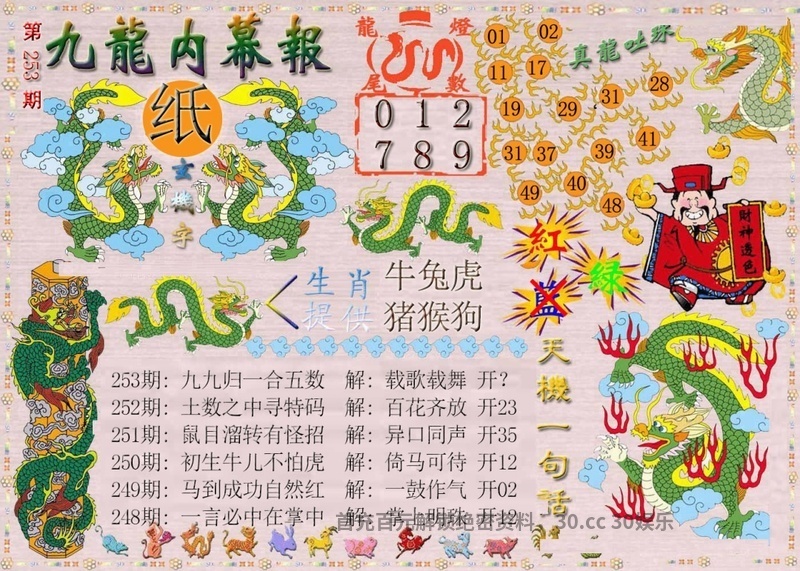 第253期
九龍内幕報
纸
玄機字
龍燈
尾數
0 1 2
7 8 9
真龍吐珠
01 02
11 17
19 29 31 28
31 37 39 41
49 40 48
紅
藍
绿
財神透色
生肖提供
牛兔虎
猪猴狗
天機一句話
253期: 九九归一合五数 解: 载歌载舞 开?
252期: 土数之中寻特码 解: 百花齐放 开23
251期: 鼠目溜转有怪招 解: 异口同声 开35
250期: 初生牛儿不怕虎 解: 倚马可待 开12
249期: 马到成功自然红 解: 一鼓作气 开02
248期: 一言必中在掌中 解: 掌上明珠 开12
30.cc 30娱乐